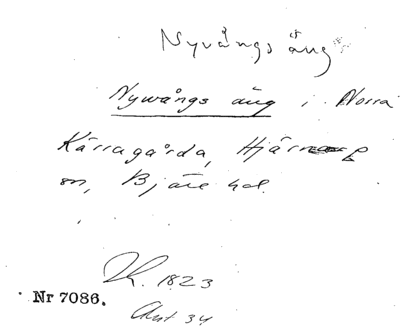 Nyvångs äng
Nywångs äng i Norra
Kärragårda, Hjärnarp
sn, Bjäre hd.
LK. 1823
Nr 7086.
Akt 34